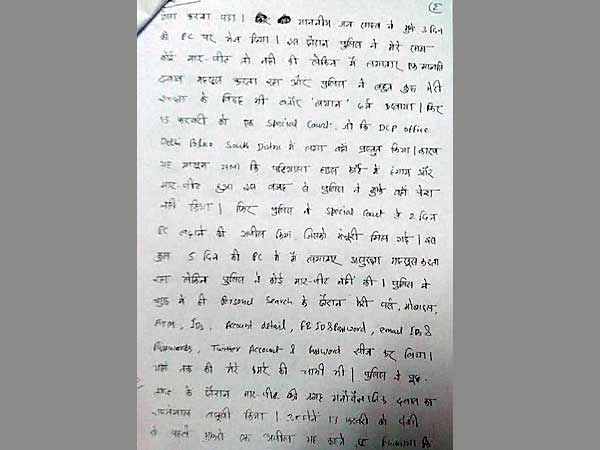 2
करना पड़ा। माननीय जज साहब ने मुझे 3 दिन
की PC पर भेज दिया। इस दौरान पुलिस ने मेरे साथ
कोई मार-पीट तो नहीं की लेकिन मैं लगातार एक मानसिक
दबाव महसूस करता रहा और पुलिस ने बहुत कुछ मेरी
के विरुद्ध भी बतौर 'बयान'
15 फरवरी को एक Special Court, जो कि DCP office
Delhi Police South District में लगा वहाँ प्रस्तुत किया। कारण
यह बताया गया कि पटियाला हाउस कोर्ट में हंगामा और
मार-पीट हुआ इस वजह से पुलिस ने मुझे वहाँ पेश
नहीं किया। फिर पुलिस ने Special Court से 2 दिन
PC बढ़ाने की अपील किया, जिसकी मंजूरी मिल गई। इस
कुल 5 दिन की PC में मैं लगातार असुरक्षा महसूस करता
रहा लेकिन पुलिस ने कोई मार-पीट नहीं की। पुलिस ने
शुरू में ही Personal Search के दौरान मेरी पर्स, मोबाइल,
ATM, IDs, Account detail, FB ID & Password, email IDs &
Passwords, Twitter Account & Password सीज कर लिया।
यहाँ तक की मेरे कमरे की चाभी भी। पुलिस ने पूछ-
ताछ के दौरान मार-पीट की जगह मनोवैज्ञानिक दबाव का
किया। उन्होंने 17 फरवरी को
से पहले मुझसे एक अपील